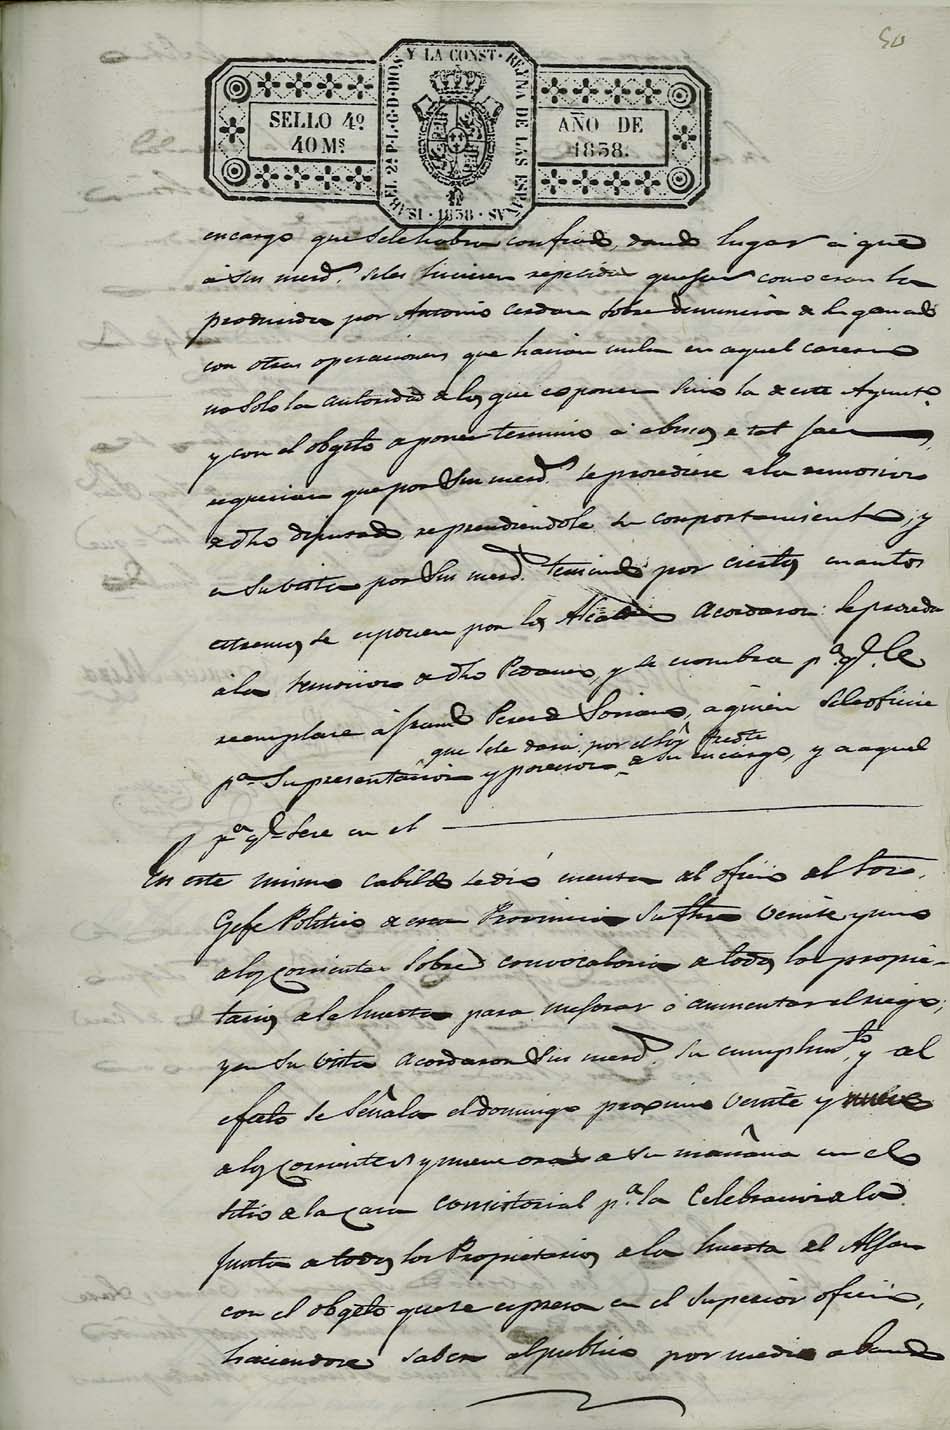 50
ISABEL 2ª P. L. G. D. DIOS Y LA CONST. REYNA DE LAS ESPAÑAS · 1838 ·
SELLO 4º
40 Ms
AÑO DE
1838.
encargo que sele habia confiado, dando lugar á que
á sus merd. seles hiciesen repetidas quejas como eran la
producida por Antonio Cerdan sobre denuncia de la ganado
con otras operaciones que hacian nula en aquel
no solo la autoridad de los que esponen sino la de este Ayunto
y con el obgeto de poner termino á abusos de tal
requerian que por Sus merd. se procediese a la remosion
de dho diputado reprendiendole su comportamiento; y
en su vista por Sus merd. teniendo por ciertos cuantos
estremos se esponen por los Alcaldes Acordaron: se proceda
á la remocion de dho Pedaneo, y se nombra pª. qe. le
reemplace á Juan Perez de Soriano, a quien sele oficie
que sele dará por el Sor Presdte
pª. su presentacion y posesion de su encargo, y a aquel
pª qe. sese en el
En este mismo cabildo se dió cuenta del oficio del Sor.
Gefe Politico de esta Provincia su fha veinte y uno
de los corrientes sobre convocatoria de todos los propie-
tarios de la huerta para mejorar ó aumentar el riego;
y en su vista acordaron Sus merd. su cumplimto, y al
efecto se señala el domingo proximo veinte y
de los corrientes y nueve oras de su mañana en el
sitio de la casa consistorial pª. la celebracion de la
Junta de todos los Propietarios de la huerta el
con el obgeto que se espresa en el superior oficio,
haciendose saber al publico por medio de bando